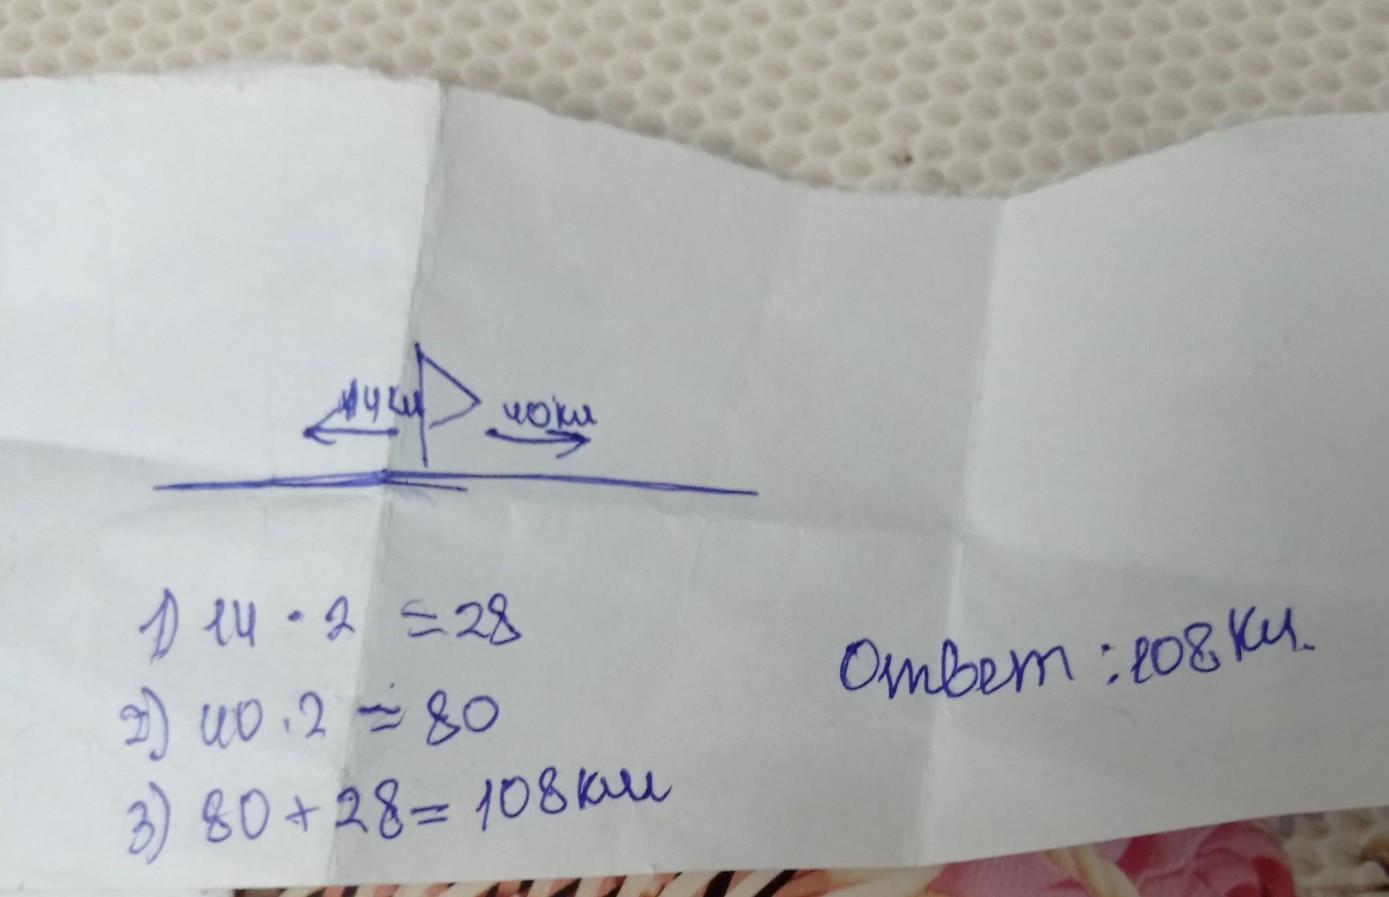 14км 40км
1) 14 · 2 = 28
2) 40 · 2 = 80
3) 80 + 28 = 108км
Ответ : 108 км.